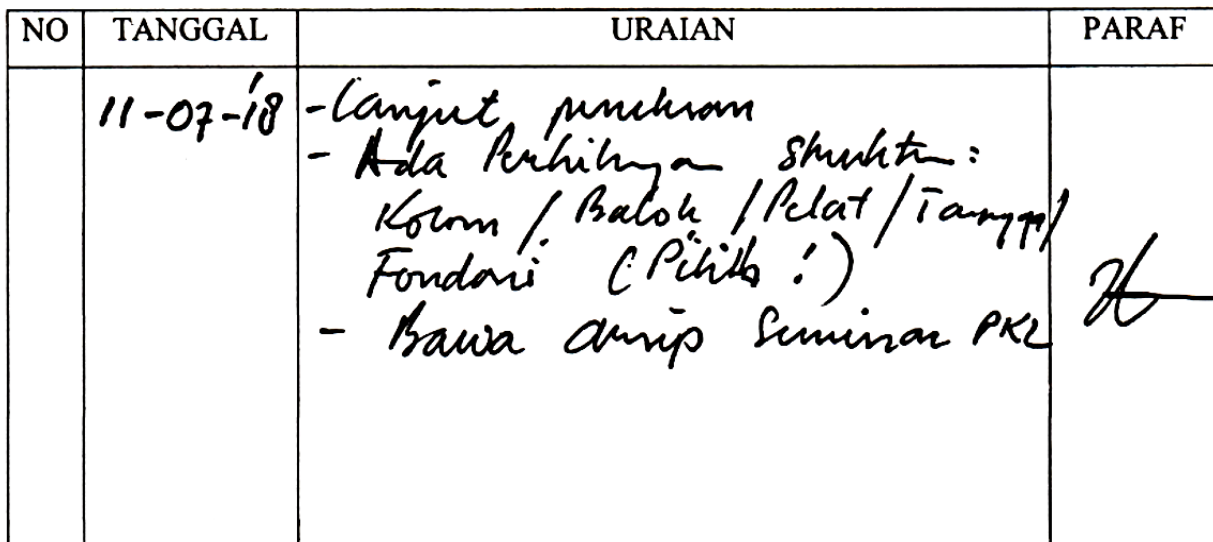 NO TANGGAL URAIAN PARAF
11-07-'18 - Lanjut
- Ada Perhitungan Struktur :
Kolom / Balok / Pelat / Tangga /
Fondasi (Pilih !)
- Bawa arsip Seminar PKL